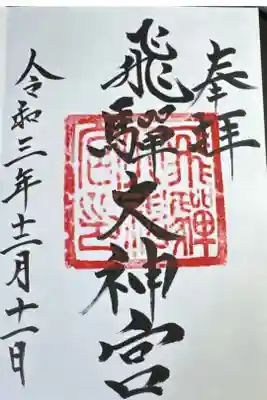 奉拝
飛驒大神宮
令和三年十二月十一日